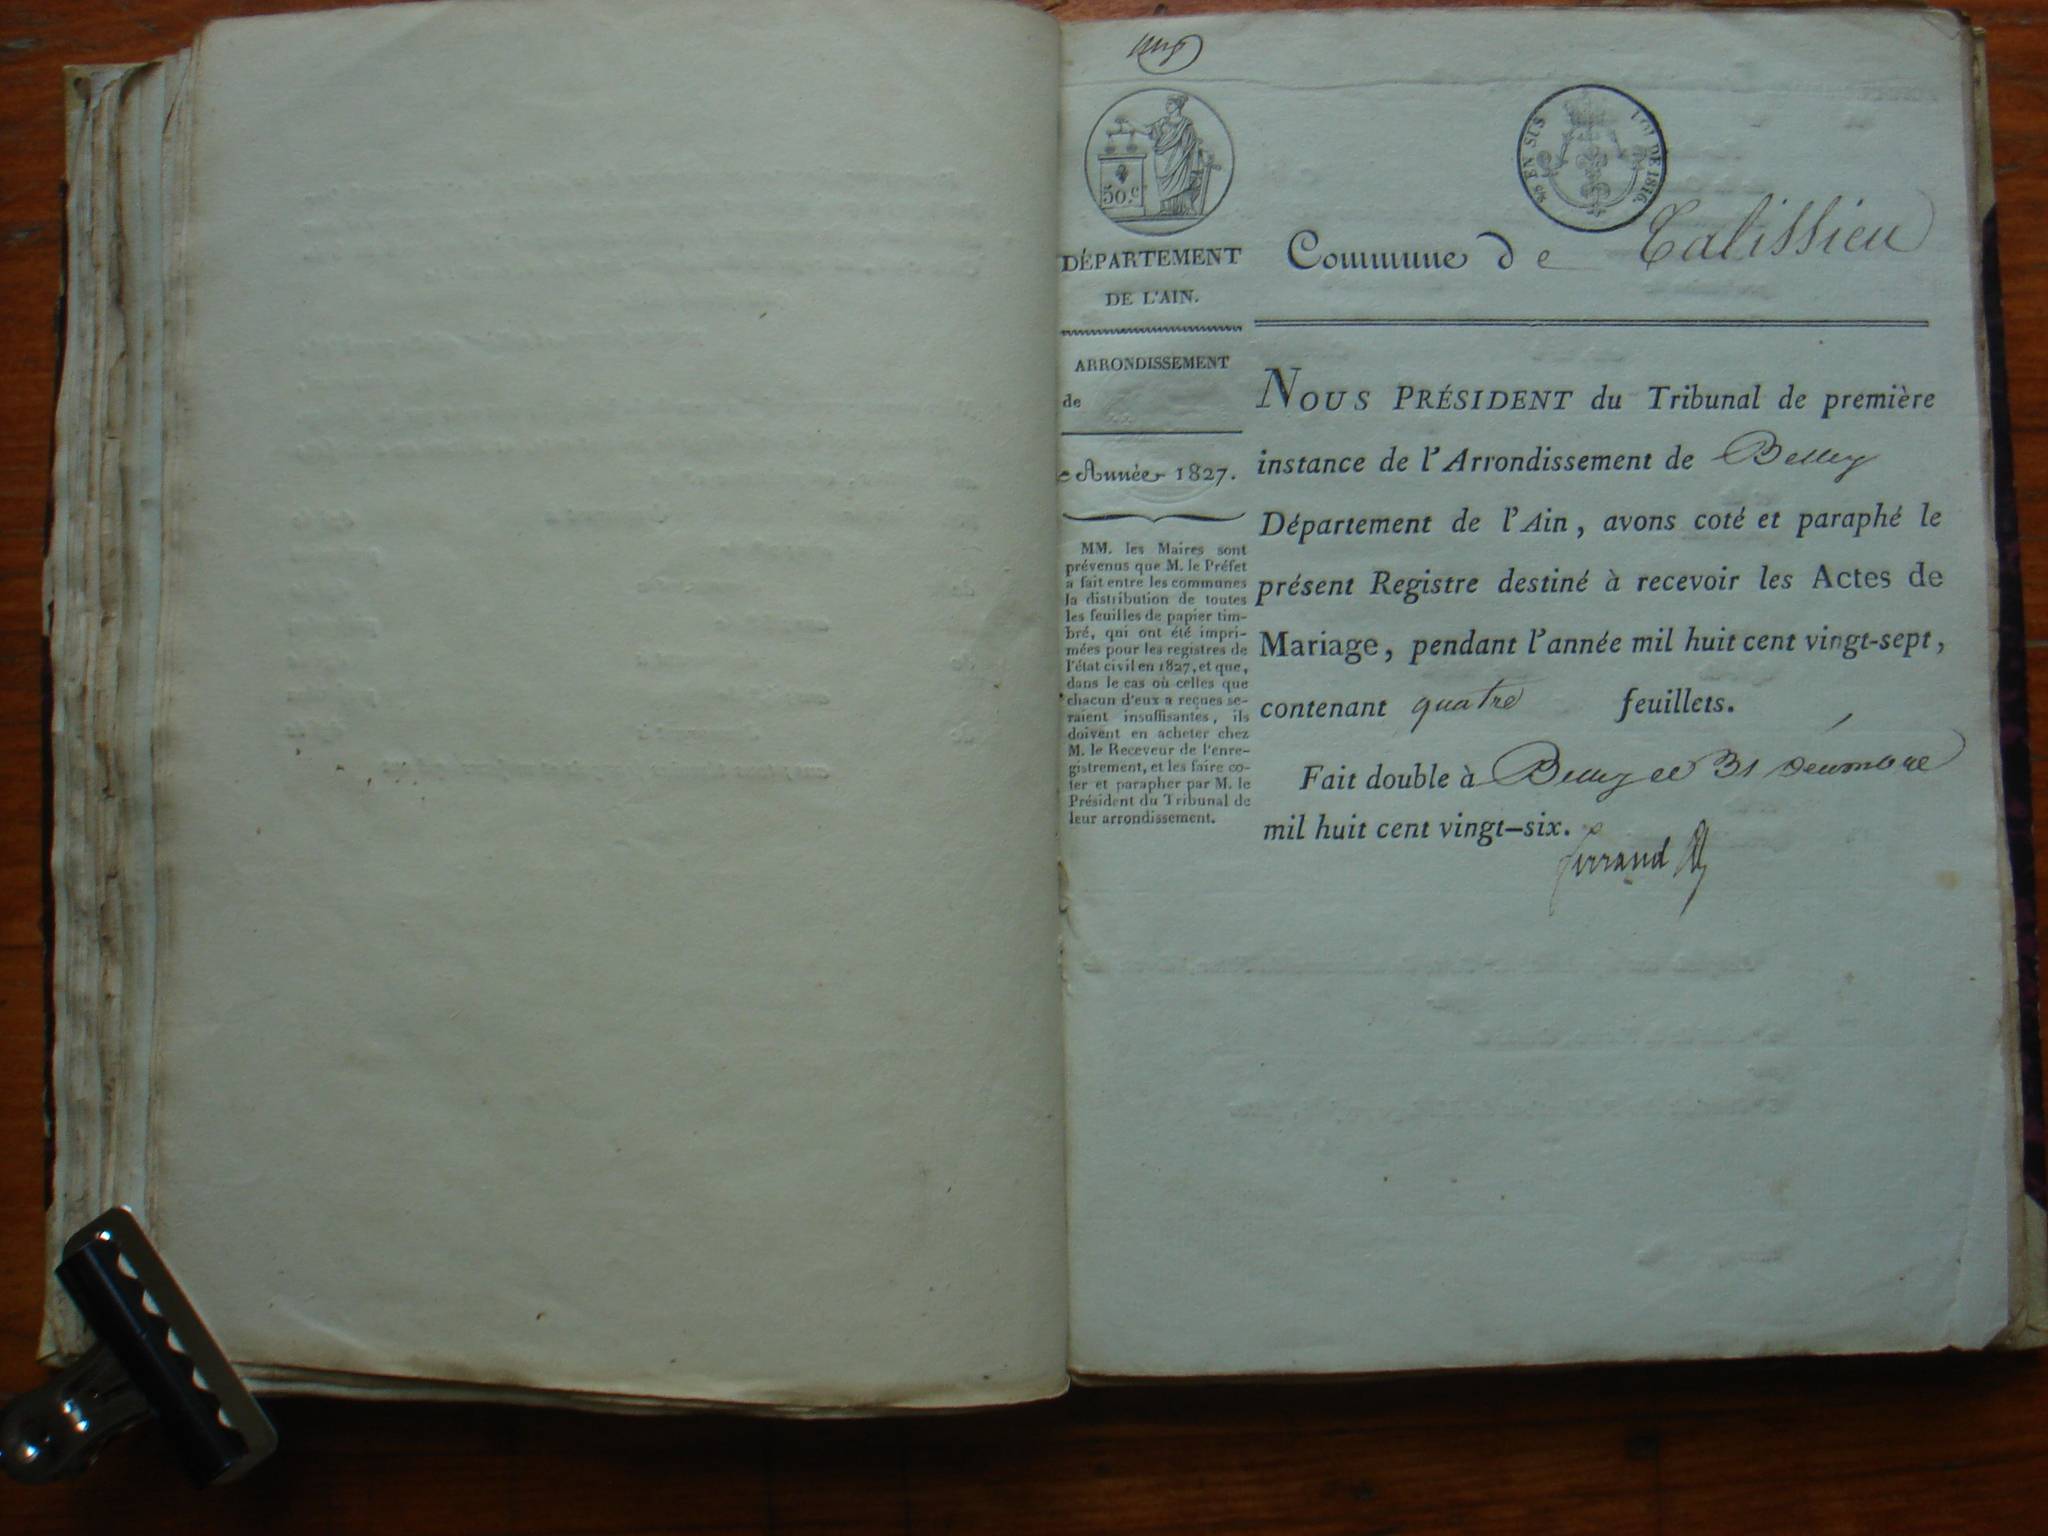 50.c
EN SUS
LOI DE 1816.
DÉPARTEMENT
DE L'AIN.
ARRONDISSEMENT
de
Année 1827.
MM. les Maires sont
prévenus que M. le Préfet
a fait entre les communes
la distribution de toutes
les feuilles de papier tim-
bré, qui ont été impri-
mées pour les registres de
l'état civil en 1827, et que,
dans le cas où celles que
chacun d'eux a reçues se-
raient insuffisantes, ils
doivent en acheter chez
M. le Receveur de l'enre-
gistrement, et les faire co-
ter et parapher par M. le
Président du Tribunal de
leur arrondissement.
Commune de Talissieu
NOUS PRÉSIDENT du Tribunal de première
instance de l'Arrondissement de Belley
Département de l'Ain, avons coté et paraphé le
présent Registre destiné à recevoir les Actes de
Mariage, pendant l'année mil huit cent vingt-sept,
contenant quatre feuillets.
Fait double à Belley ce 31 Décembre
mil huit cent vingt-six.